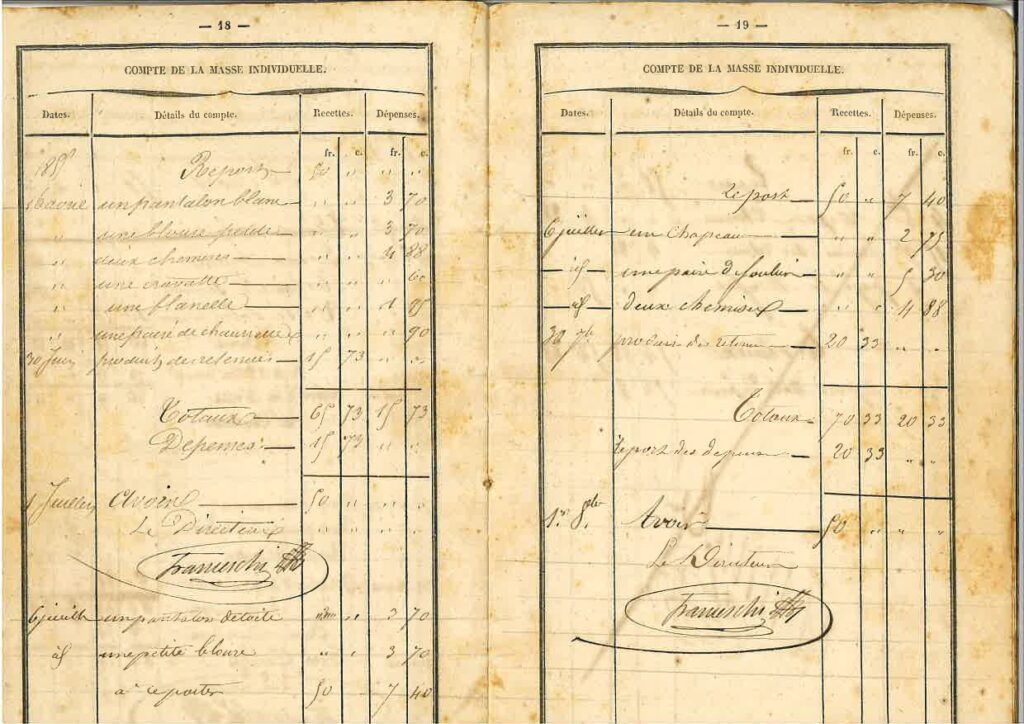 — 18 —
COMPTE DE LA MASSE INDIVIDUELLE.
Dates. Détails du compte. Recettes. Dépenses.
fr. c. fr. c.
Report 50 " " "
un pantalon blanc " " 3 70
" une blouse " " 3 70
" deux chemises " " 4 88
" une cravatte " " " 60
" une flanelle " " 1 95
" une paire de " " " 90
30 Juin produits de retenues 15 73 " "
Totaux 65 73 15 73
Dépenses 15 73 " "
1 Juillet Avoir 50 " " "
Le Directeur " " " "
Franceschi
6 juillet un pantalon de toile " " 3 70
id une petite blouse " " 3 70
à reporter 50 " 7 40
— 19 —
COMPTE DE LA MASSE INDIVIDUELLE.
Dates. Détails du compte. Recettes. Dépenses.
fr. c. fr. c.
Report 50 " 7 40
6 juillet un chapeau " " 2 75
id une paire de soulier " " 5 30
id deux chemises " " 4 88
30 7bre produit des retenues 20 33 " "
Totaux 70 33 20 33
Report des dépenses 20 33 " "
1er 8bre Avoir 50 " " "
Le Directeur
Franceschi